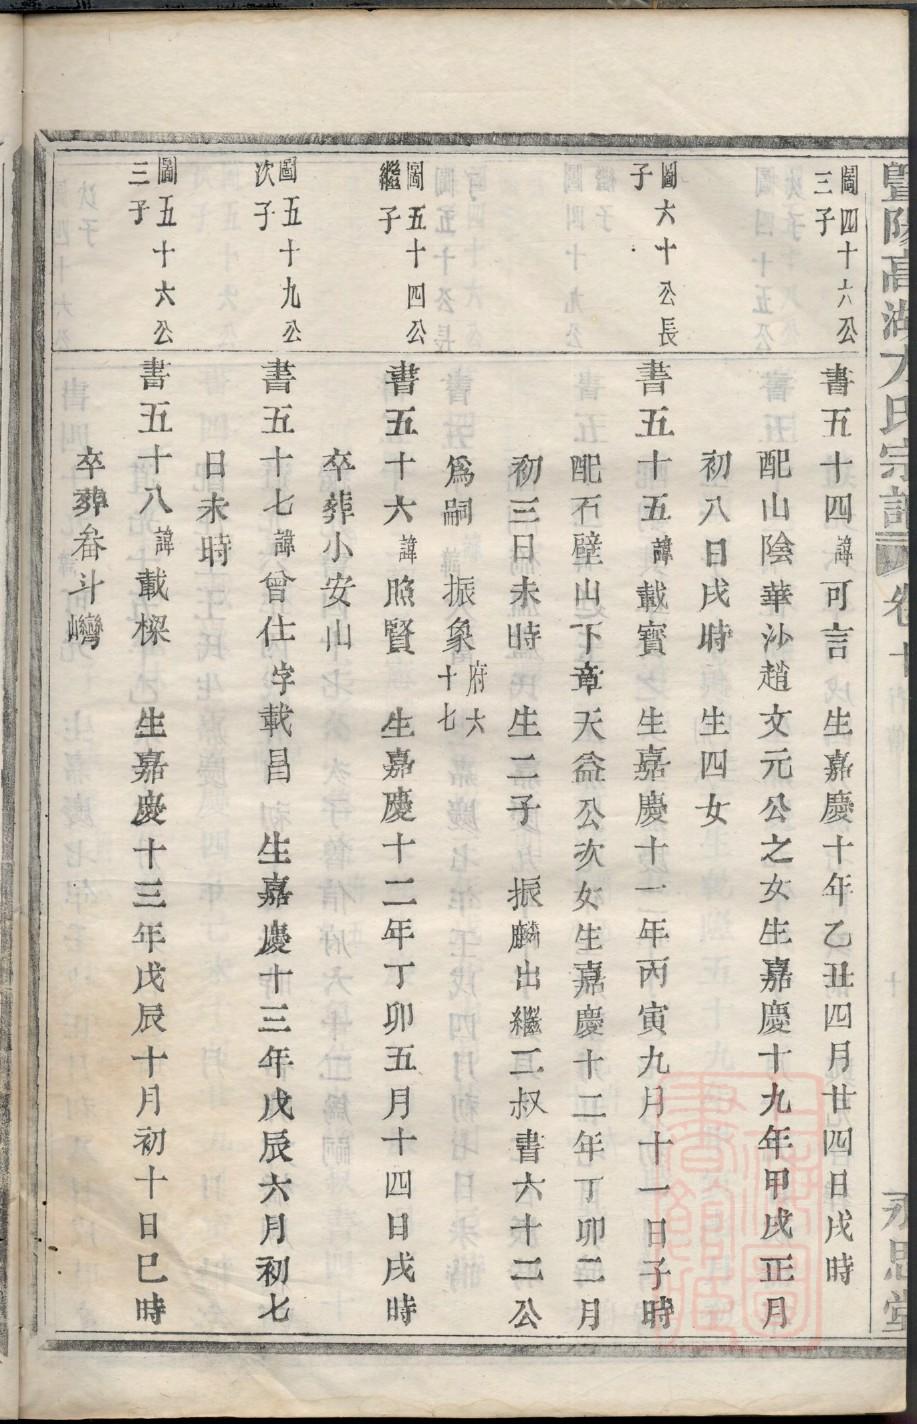 圖四十六公
三子
書五十四諱可言 生嘉慶十年乙丑四月廿四日戌時
配山陰華沙趙文元公之女生嘉慶十九年甲戌正月
初八日戌時 生四女
圖六十公長
子
書五十五諱載寶 生嘉慶十一年丙寅九月十一日子時
配石壁山下章天益公次女生嘉慶十二年丁卯二月
初三日未時 生二子 振麟出繼二叔書六十二公
為嗣 振象府六十七
圖五十四公
繼子
書五十六諱照賢 生嘉慶十二年丁卯五月十四日戌時
卒葬小安山
圖五十九公
次子
書五十七諱曾仕字載昌 生嘉慶十三年戊辰六月初七
日未時
圖五十六公
三子
書五十八諱載樑 生嘉慶十三年戊辰十月初十日巳時
卒葬畚斗巒